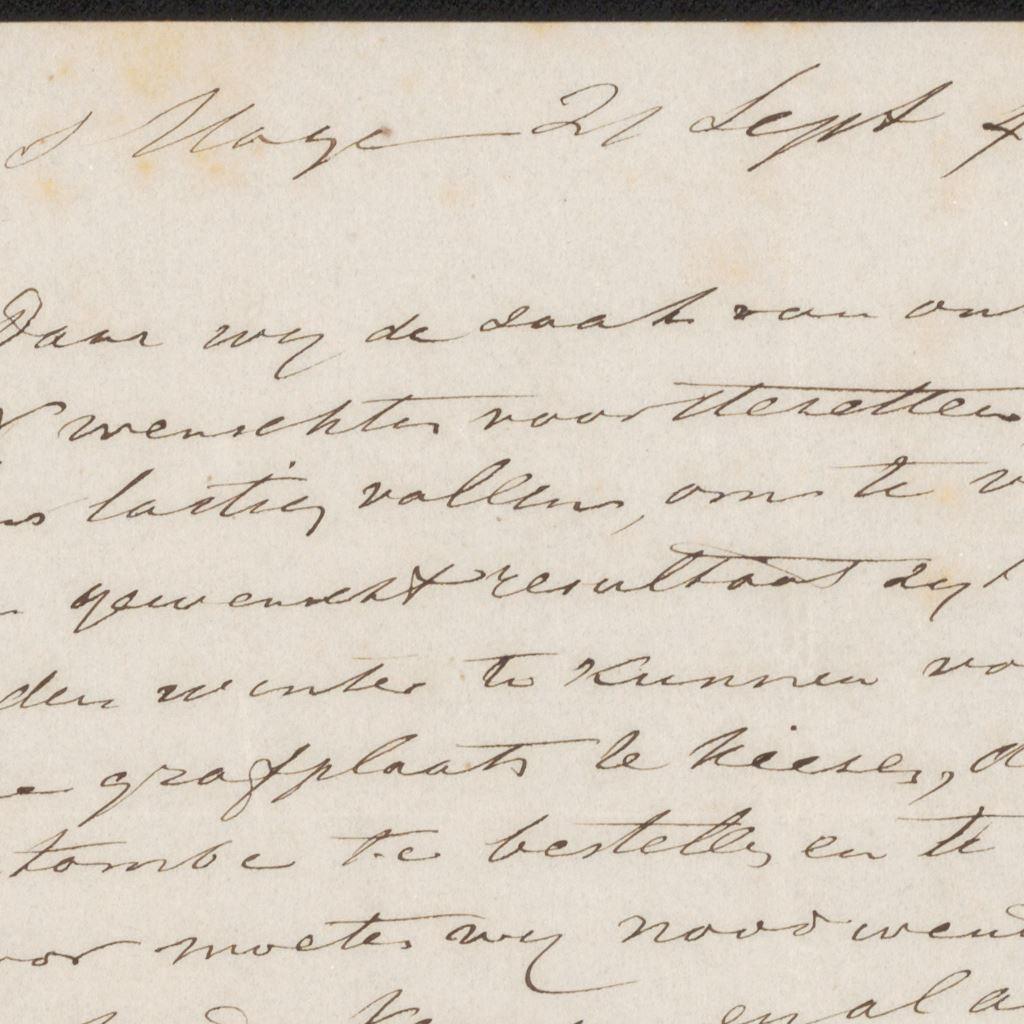 s Hage 21 Sept 4
Daar wij de zaak van on
wenschten voorttezetten
lastig vallen, om te v
gewenscht resultaat zyt
den winter te kunnen vo
e grafplaats te kiezen, d
tombe te bestellen en te
oor moeten wij noodwend